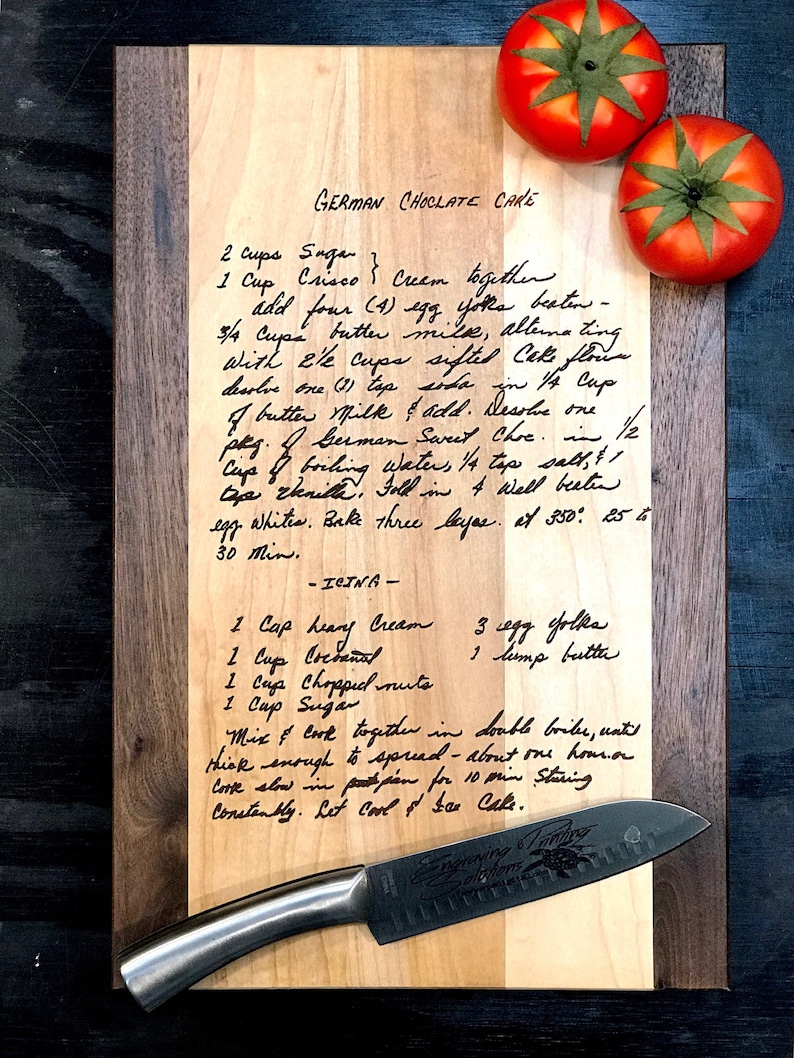 GERMAN CHOCLATE CAKE
2 cups Sugar
1 Cup Crisco } Cream together
add four (4) egg yolks beaten -
3/4 Cups butter milk, alternating
With 2 1/2 Cups sifted Cake flour
desolve one (1) tsp soda in 1/4 Cup
of butter Milk & add. Desolve one
pkg. of German Sweet Choc. in 1/2
Cup of boiling Water, 1/4 tsp salt, & 1
tsp Vanilla. Fold in 4 Well beaten
egg Whites. Bake three layers. at 350°. 25 to
30 Min.
- ICING -
1 Cup heavy Cream 3 egg yolks
1 Cup Cocoanut 1 lump butter
1 Cup Chopped nuts
1 Cup Sugar
Mix & Cook together in double boiler, until
thick enough to spread - about one hour. or
Cook slow in pan for 10 min Stiring
Constantly. Let Cool & Ice Cake.
Engraving & Printing
Solutions